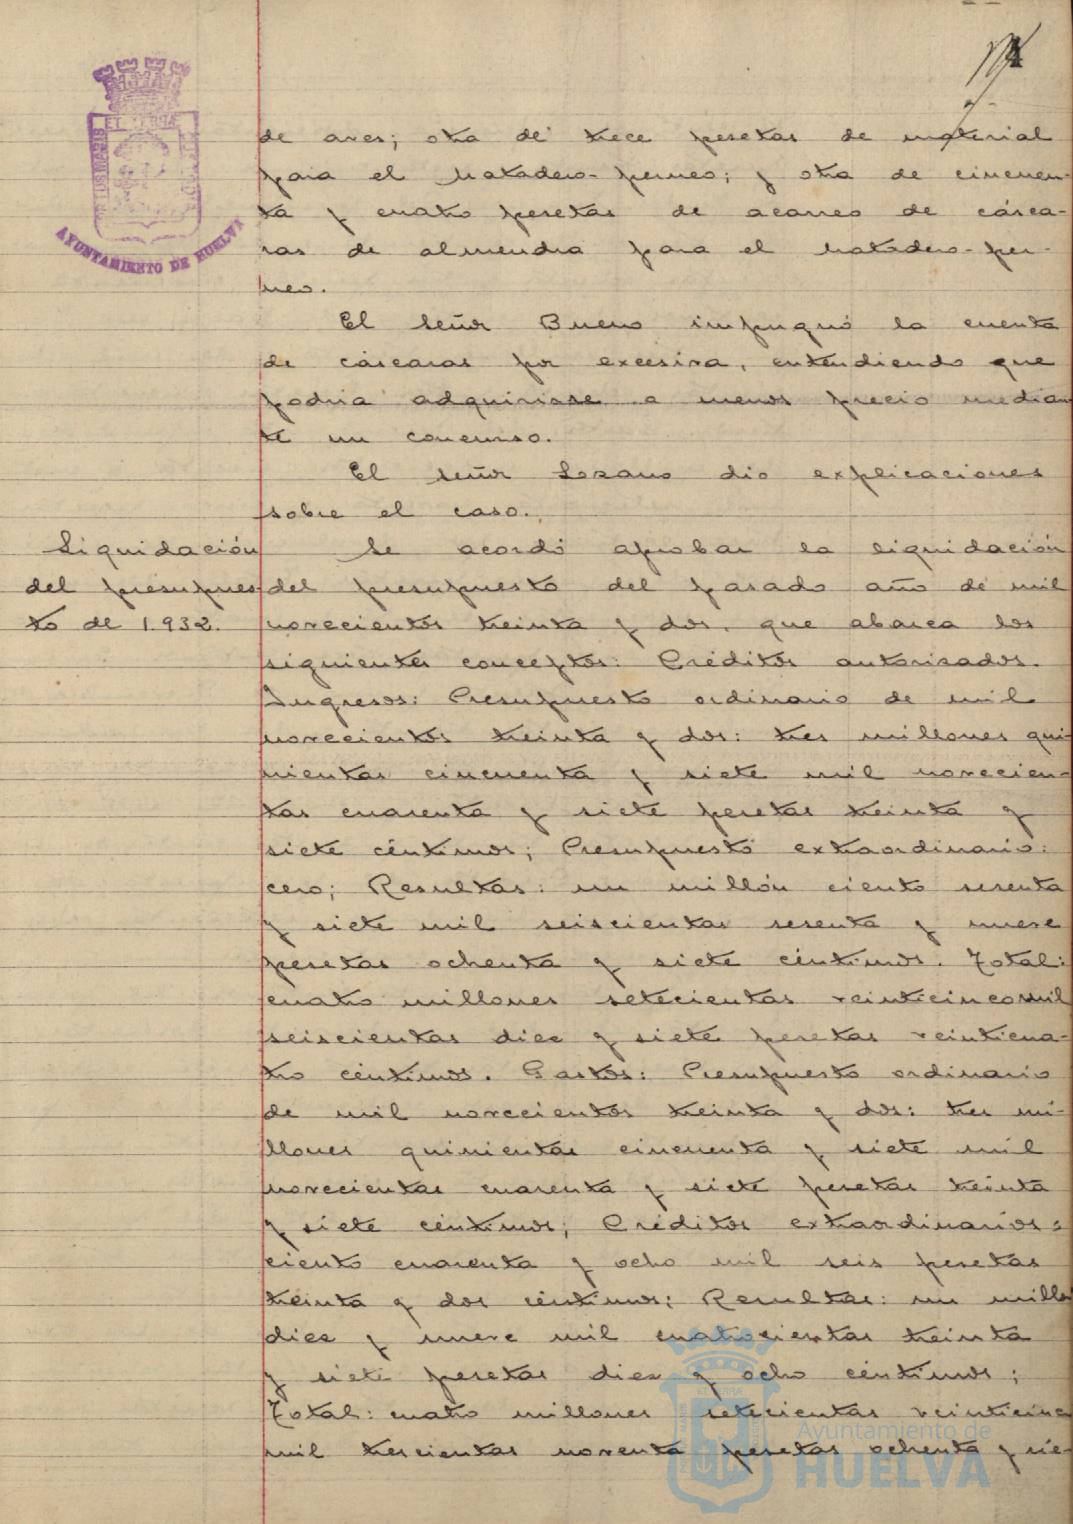 de aves; otra de trece pesetas de material
para el Matadero-perneo; y otra de cincuen-
ta y cuatro pesetas de acarreo de cásca-
ras de almendra para el matadero-per-
neo.
El señor Bueno impugnó la cuenta
de cáscaras por excesiva, entendiendo que
podria adquirirse a menos precio median
te un concurso.
El señor Lozano dio explicaciones
sobre el caso.
Liquidación
del presupues-
to de 1.932.
Se acordó aprobar la liquidación
del presupuesto del pasado año de mil
novecientos treinta y dos, que abarca los
siguientes conceptos: Créditos autorizados.
Ingresos: Presupuesto ordinario de mil
novecientos treinta y dos: tres millones qui-
nientas cincuenta y siete mil novecien-
tas cuarenta y siete pesetas treinta y
siete céntimos; Presupuesto extraordinario:
cero; Resultas: un millón ciento sesenta
y siete mil seiscientas sesenta y nueve
pesetas ochenta y siete céntimos. Total:
cuatro millones setecientas veinticinco mil
seiscientas diez y siete pesetas veinticua-
tro céntimos. Gastos: Presupuesto ordinario
de mil novecientos treinta y dos: tres mi-
llones quinientas cincuenta y siete mil
novecientas cuarenta y siete pesetas treinta
y siete céntimos; Créditos extraordinarios:
ciento cuarenta y ocho mil seis pesetas
treinta y dos céntimos; Resultas: un millón
diez y nueve mil cuatrocientas treinta
y siete pesetas diez y ocho céntimos;
Total: cuatro millones setecientas veinticinco
mil trescientas noventa pesetas ochenta y sie-
AYUNTAMIENTO DE HUELVA
Ayuntamiento de
HUELVA